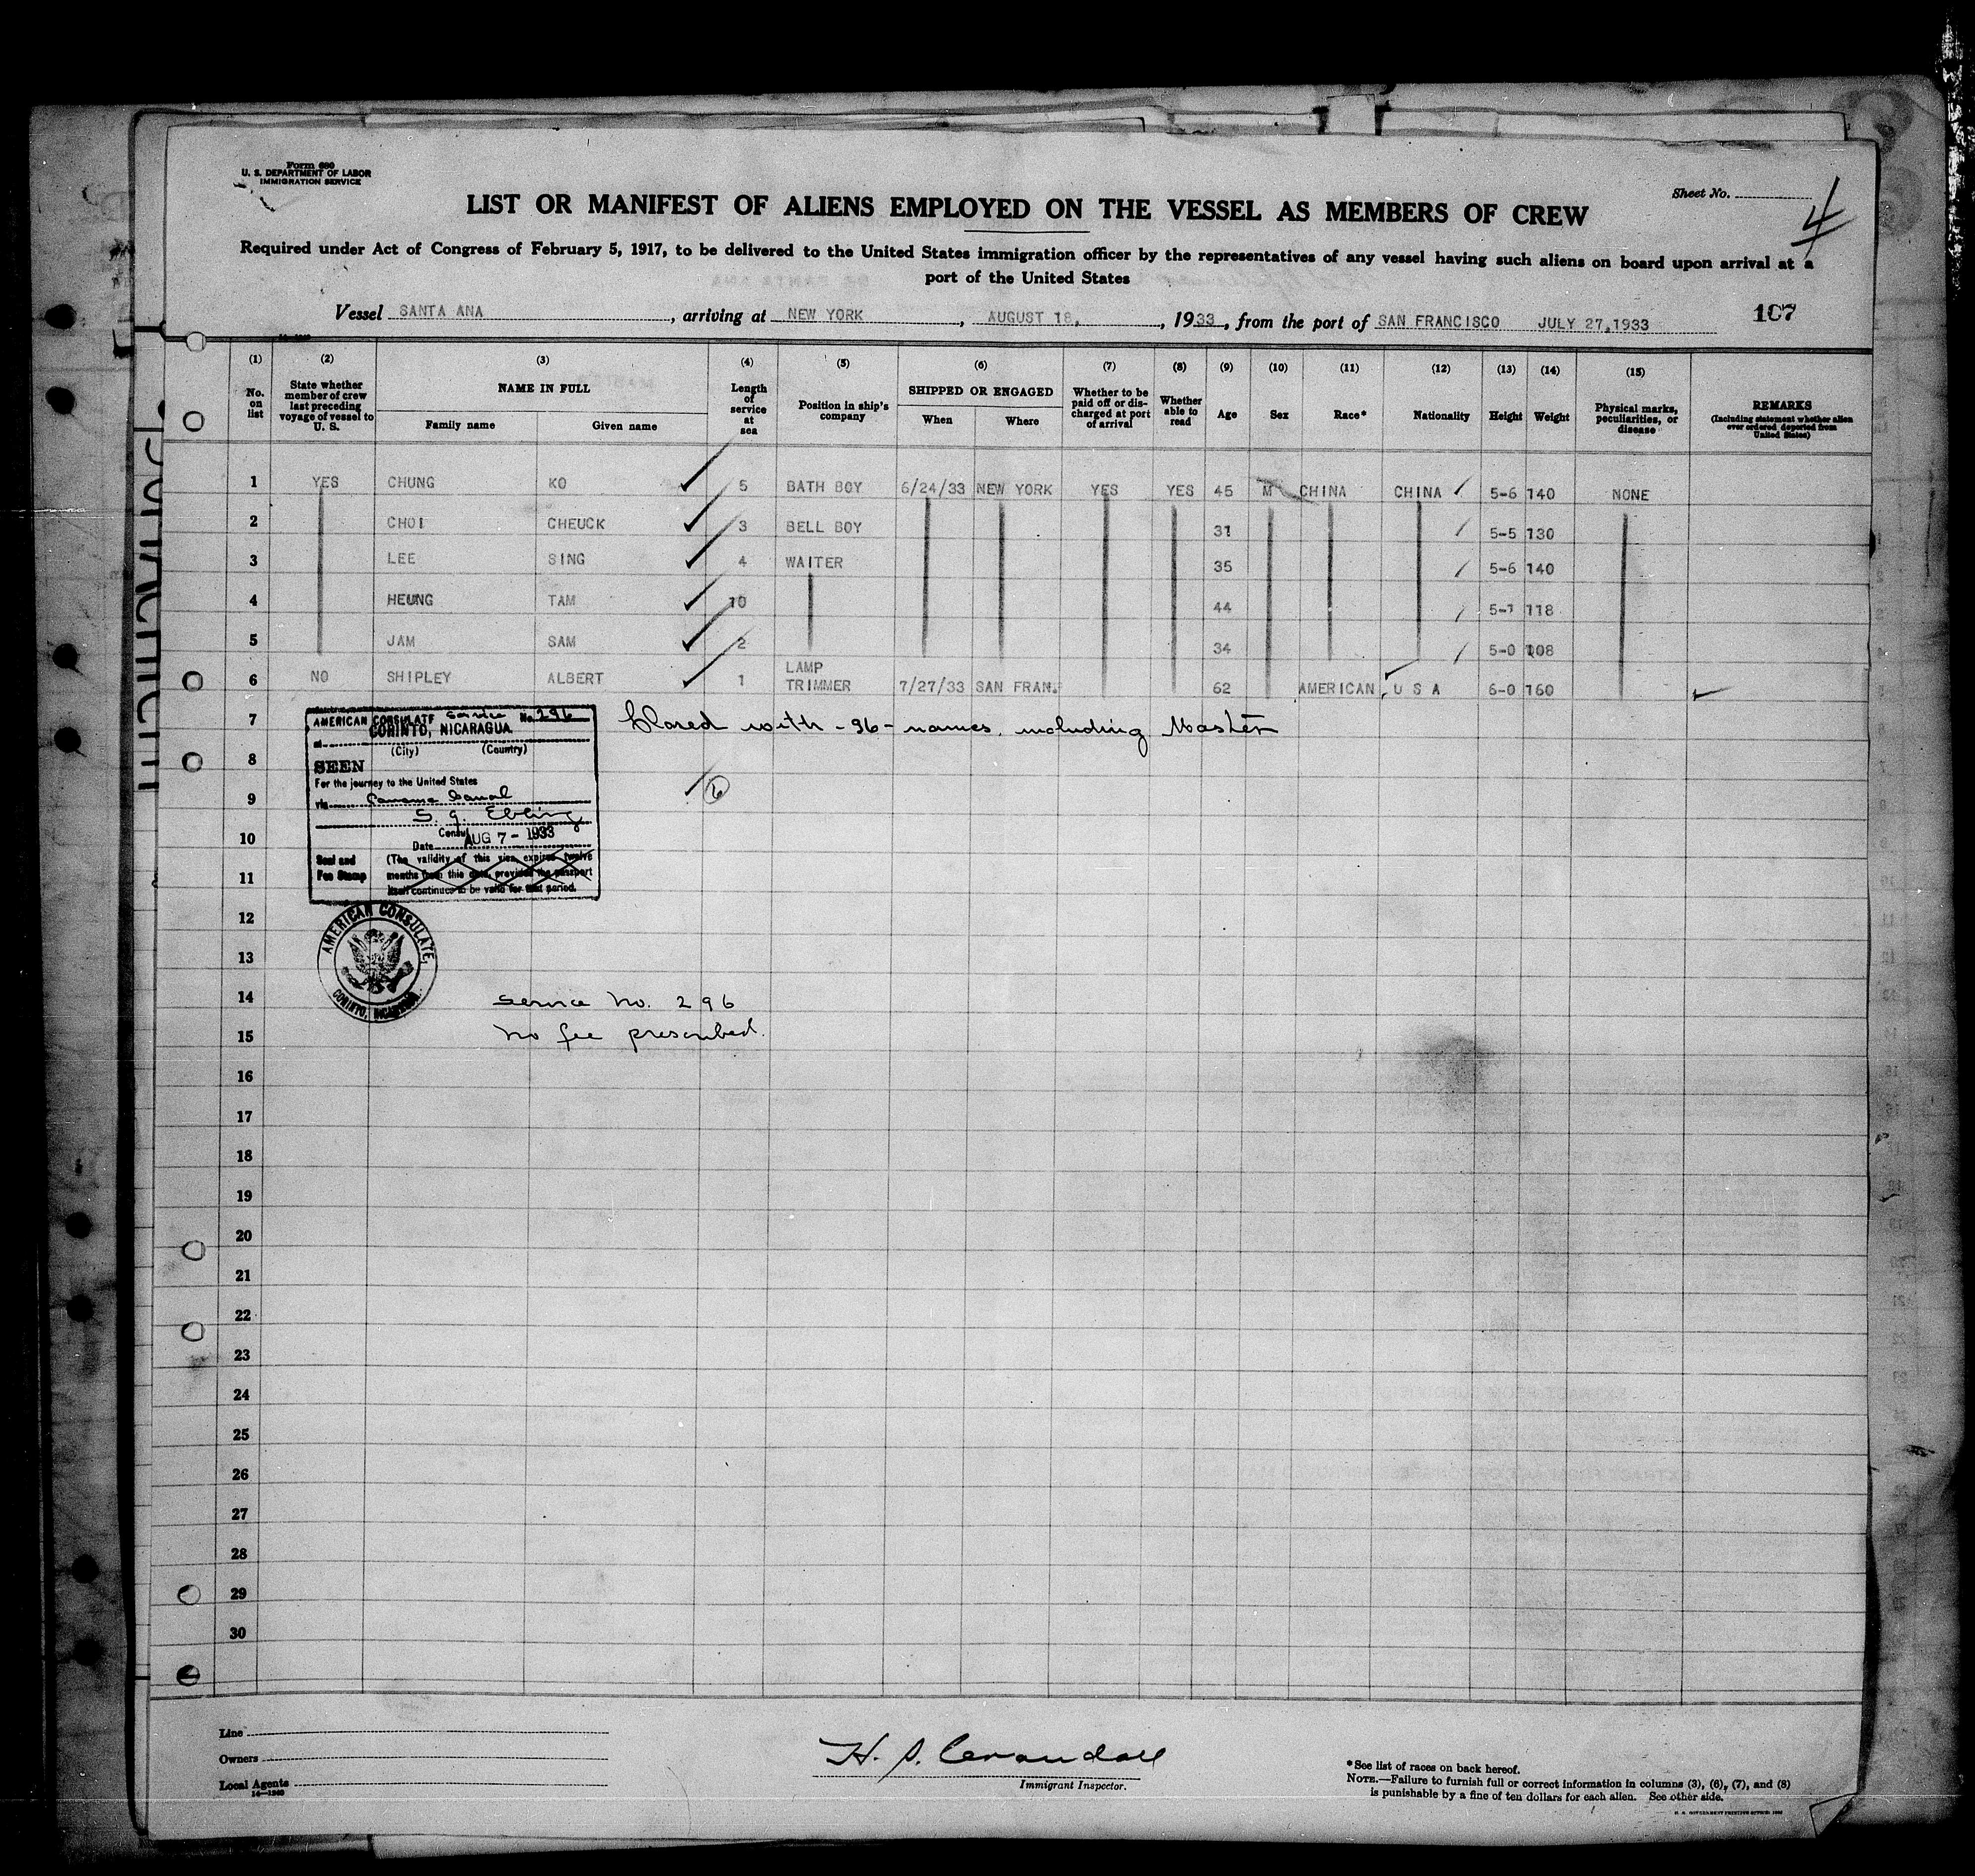 Form 680
U. S. DEPARTMENT OF LABOR
IMMIGRATION SERVICE
Sheet No.
4
LIST OR MANIFEST OF ALIENS EMPLOYED ON THE VESSEL AS MEMBERS OF CREW
Required under Act of Congress of February 5, 1917, to be delivered to the United States immigration officer by the representatives of any vessel having such aliens on board upon arrival at a
port of the United States
Vessel SANTA ANA, arriving at NEW YORK, AUGUST 18, 1933, from the port of SAN FRANCISCO JULY 27,1933 107
(1) (2) (3) (4) (5) (6) (7) (8) (9) (10) (11) (12) (13) (14) (15)
No. on list
State whether member of crew last preceding voyage of vessel to U. S.
NAME IN FULL
Family name Given name
Length of service at sea
Position in ship's company
SHIPPED OR ENGAGED
When Where
Whether to be paid off or discharged at port of arrival
Whether able to read
Age
Sex
Race*
Nationality
Height
Weight
Physical marks, peculiarities, or disease
REMARKS
(Including statement whether alien ever ordered deported from United States)
1 YES CHUNG KO 5 BATH BOY 6/24/33 NEW YORK YES YES 45 M CHINA CHINA 5-6 140 NONE
2 CHOI CHEUCK 3 BELL BOY 31 5-5 130
3 LEE SING 4 WAITER 35 5-6 140
4 HEUNG TAM 10 44 5-1 118
5 JAM SAM 2 34 5-0 108
6 NO SHIPLEY ALBERT 1 LAMP TRIMMER 7/27/33 SAN FRAN. 62 AMERICAN U S A 6-0 160
7 Closed with -96- names, including Master
8
9 6
10
11
12
13
14
15
16
17
18
19
20
21
22
23
24
25
26
27
28
29
30
AMERICAN CONSULATE Service No. 296
at CORINTO, NICARAGUA
(City) (Country)
SEEN
For the journey to the United States
via Panama Canal
S. G. Ebling
Consul
Date AUG 7 - 1933
Seal and Fee Stamp
(The validity of this visa expires twelve
months from this date, provided the passport
itself continues to be valid for that period.
AMERICAN CONSULATE,
CORINTO, NICARAGUA.
Service No. 296
No fee prescribed.
Line
Owners
Local Agents
14—1240
H. S. Crandall
Immigrant Inspector.
*See list of races on back hereof.
NOTE.—Failure to furnish full or correct information in columns (3), (6), (7), and (8)
is punishable by a fine of ten dollars for each alien. See other side.